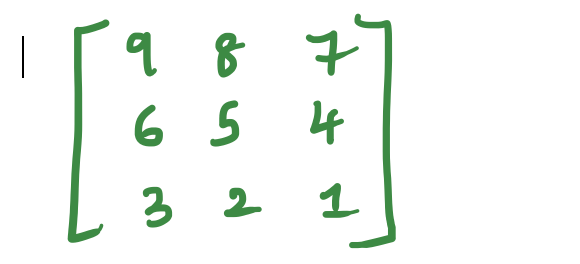 9 8 7
6 5 4
3 2 1